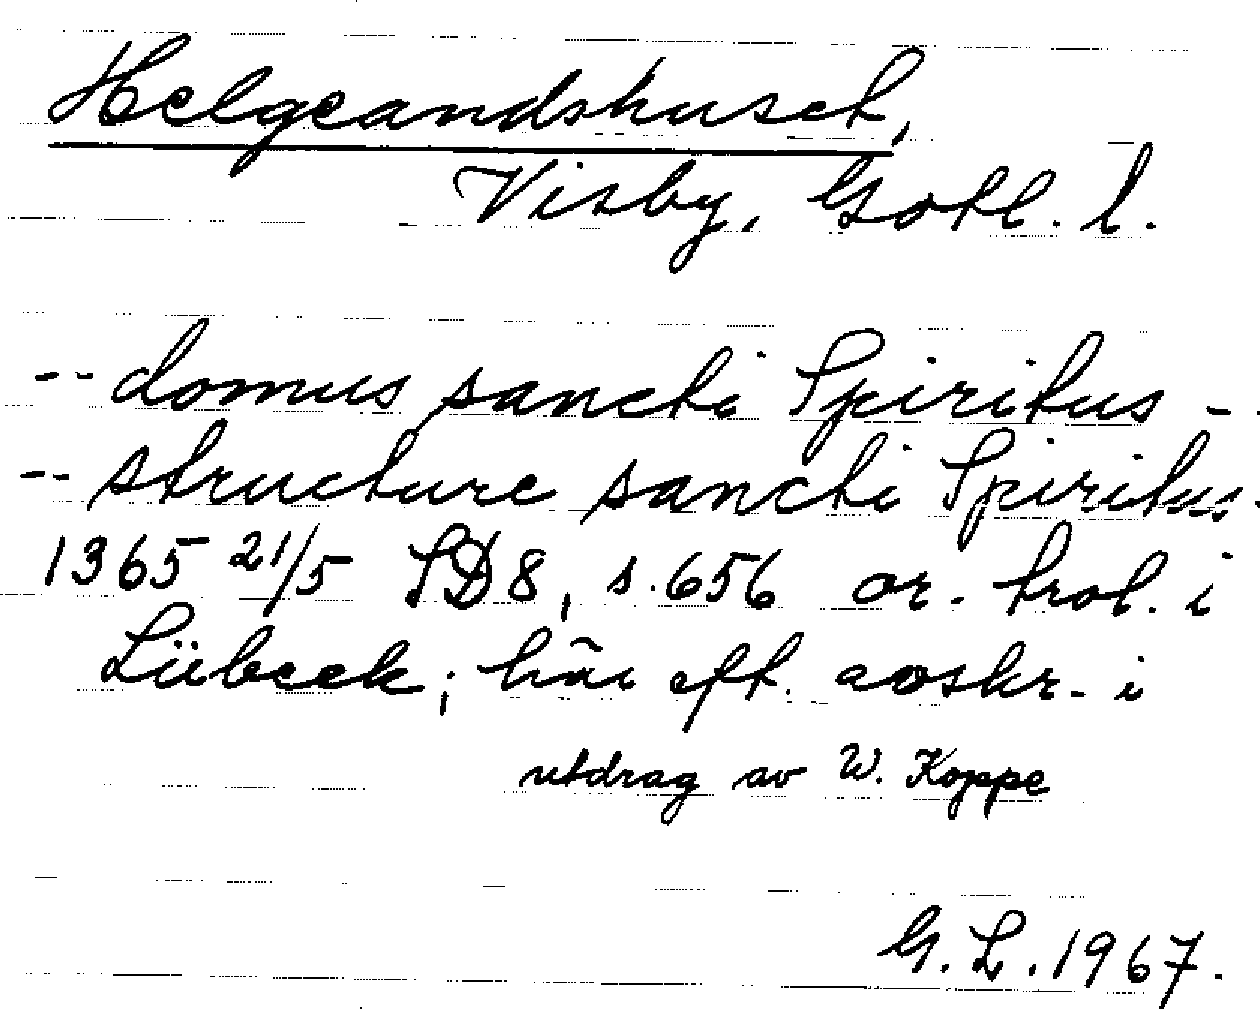 Helgeandshuset,
Visby, Gotl. l.
-- domus sancti Spiritus --
-- structure sancti Spiritus -
1365 21/5 SD8, s. 656 or. trol. i
Lübeck; här eft. avskr. i
utdrag av W. Koppe
G. L. 1967.